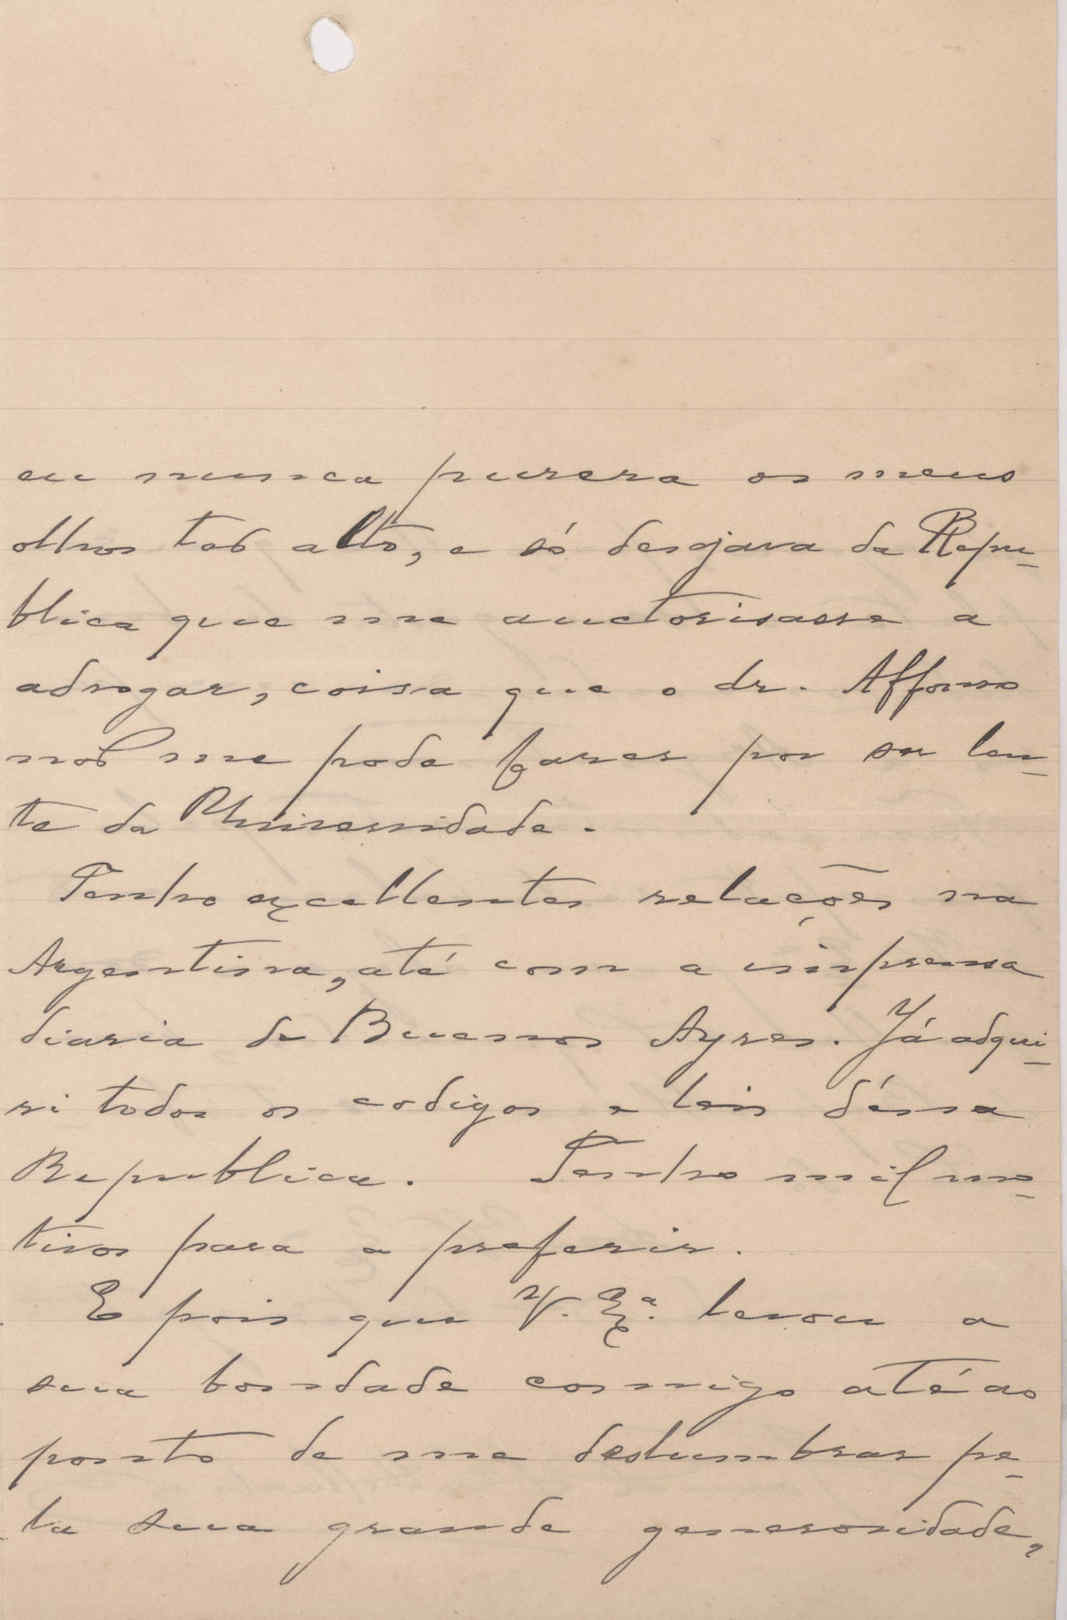 eu nunca puzera os meus
olhos taõ alto, e só desejava da Repu-
blica que me auctorisasse a
advogar, coisa que o dr. Affonso
naõ me pode fazer por ser len-
te da Universidade.
Tenho excellentes relações na
Argentina, até com a imprensa
diaria de Buenos Ayres. Já adqui-
ri todos os codigos e leis déssa
Republica. Tenho mil mo-
tivos para a preferir.
E pois que V. Exª. levou a
sua bondade comigo até ao
ponto de me deslumbrar pe-
la sua grande generosidade,